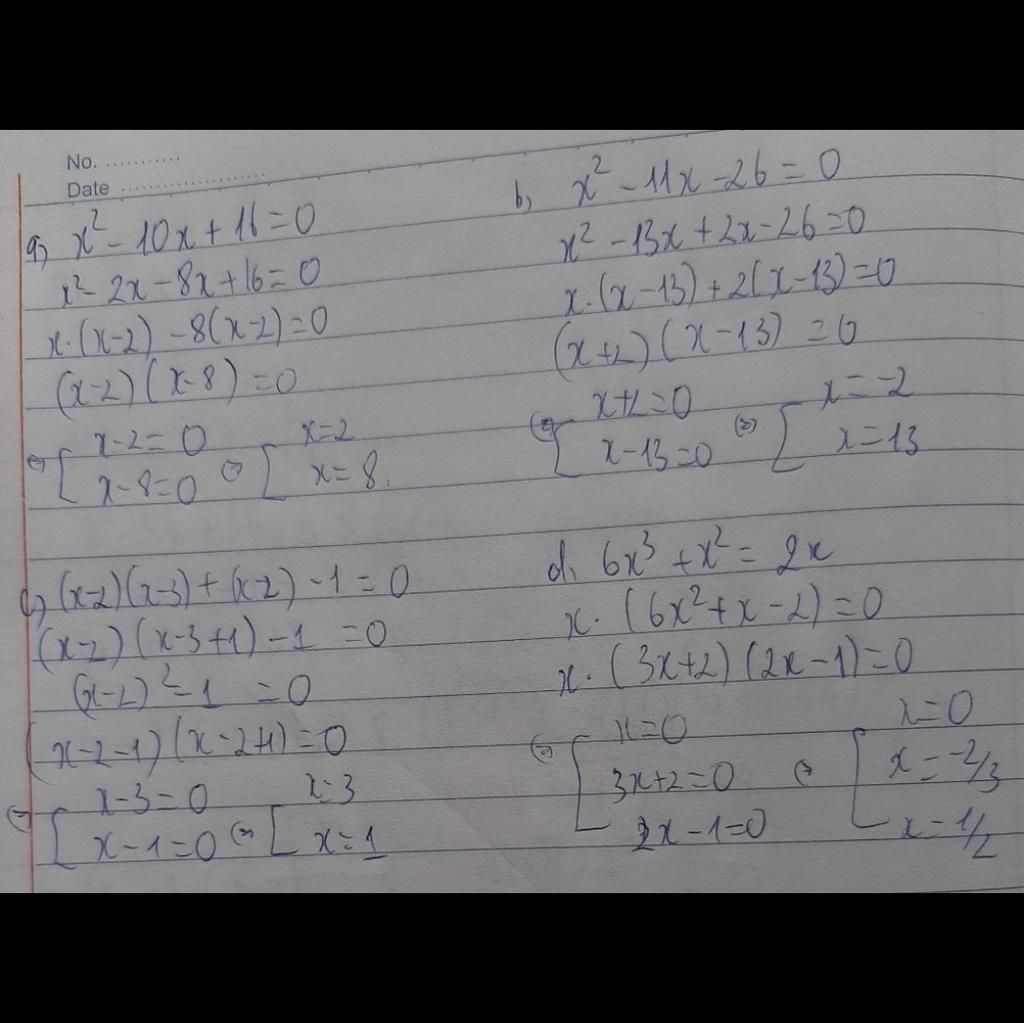 No. ............
Date ........................
a, x² - 10x + 16 = 0
x² - 2x - 8x + 16 = 0
x.(x-2) - 8(x-2) = 0
(x-2)(x-8) = 0
⇔ [ x-2=0 ⇔ [ x=2
x-8=0 x=8.
b, x² - 11x - 26 = 0
x² - 13x + 2x - 26 = 0
x.(x-13) + 2(x-13) = 0
(x+2)(x-13) = 0
⇔ [ x+2=0 ⇔ [ x=-2
x-13=0 x=13
c, (x-2)(x-3) + (x-2) - 1 = 0
(x-2)(x-3+1) - 1 = 0
(x-2)² - 1 = 0
(x-2-1)(x-2+1) = 0
⇔ [ x-3=0 ⇔ [ x=3
x-1=0 x=1
d, 6x³ + x² = 2x
x.(6x² + x - 2) = 0
x.(3x+2)(2x-1) = 0
⇔ [ x=0 ⇔ [ x=0
3x+2=0 x=-2/3
2x-1=0 x=1/2